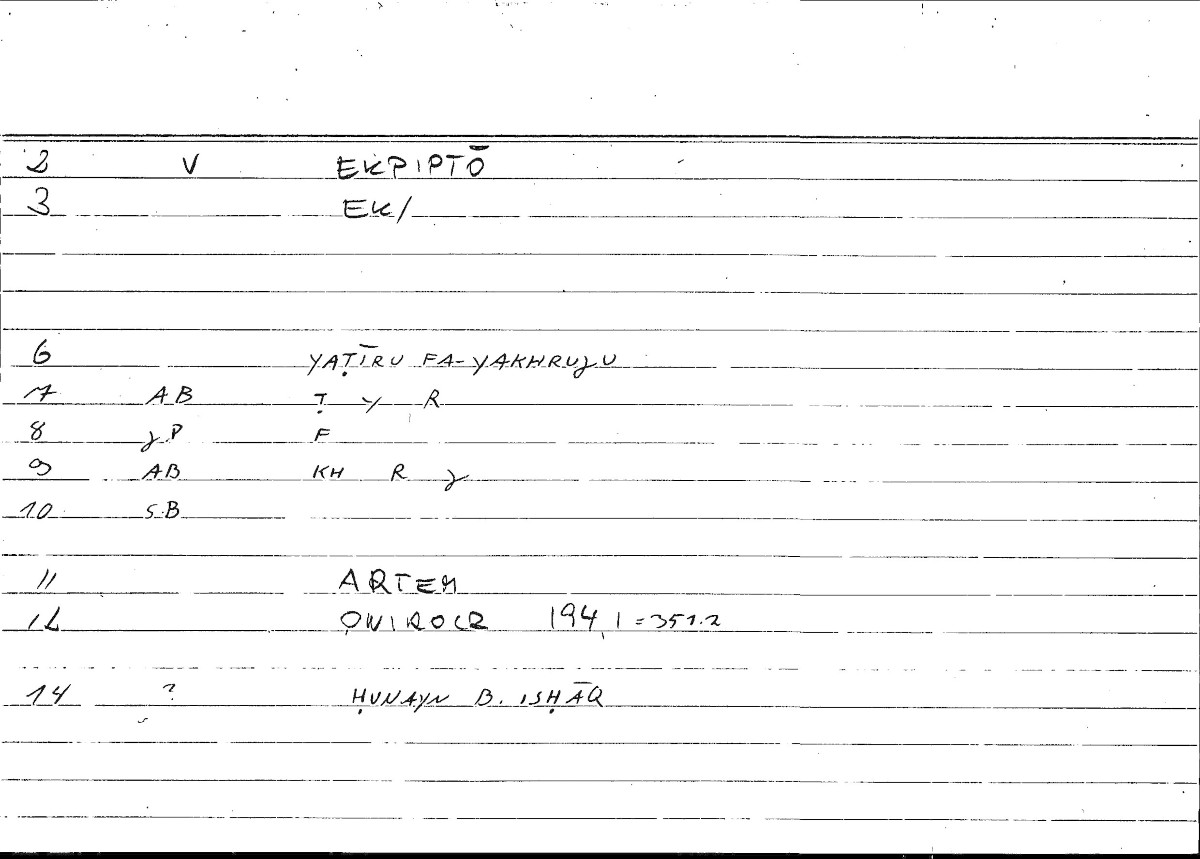 2 V EKPIPTŌ
3 EK/
6 YAṬĪRU FA-YAKHRUJU
7 AB Ṭ Y R
8 JP F
9 AB KH R J
10 SB
11 ARTEM
12 ONIROCR 194,1=351.2
14 ? ḤUNAYN B. ISḤĀQ